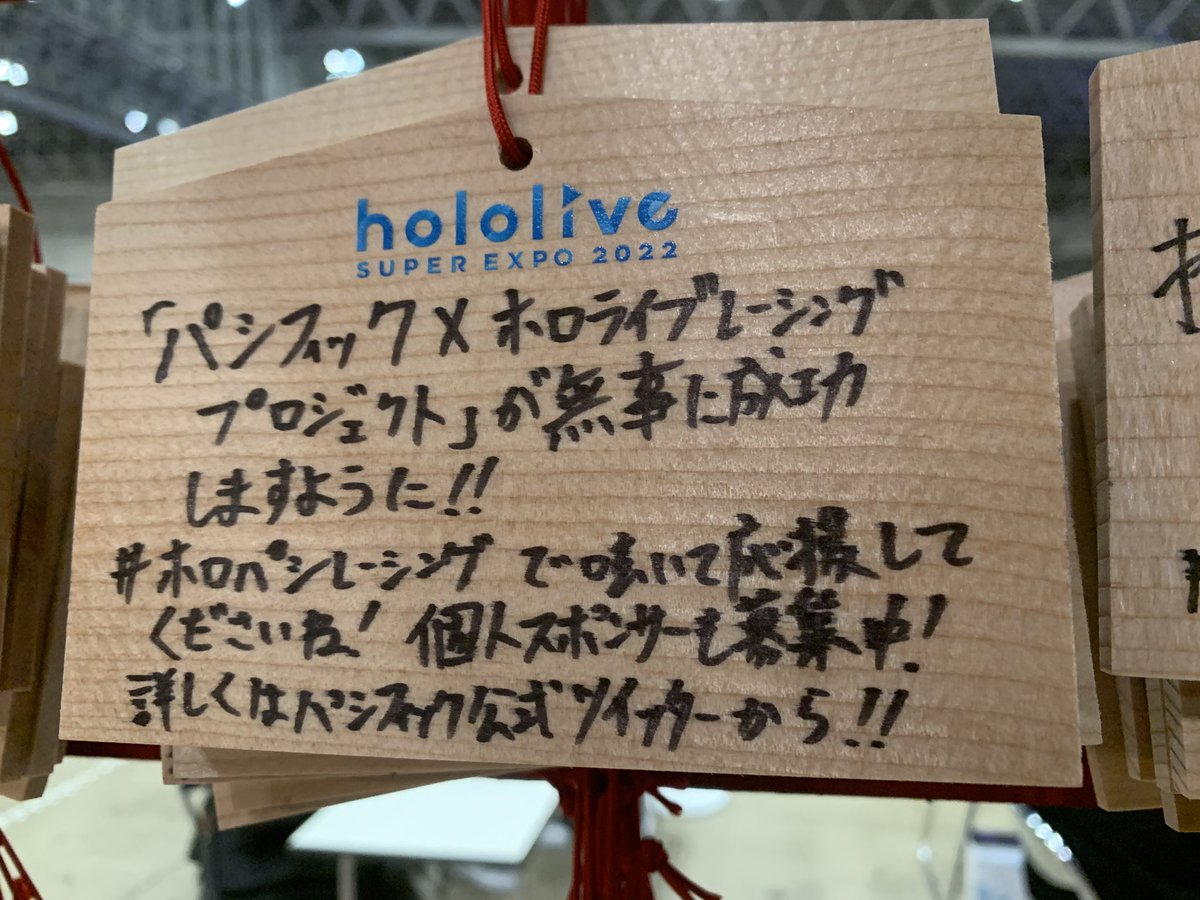 hololive
SUPER EXPO 2022
「パシフィック×ホロライブレーシング
プロジェクト」が無事に成功
しますように!!
#ホロパシレーシング で呟いて応援して
くださいね! 個人スポンサーも募集中!
詳しくはパシフィック公式ツイッターから!!